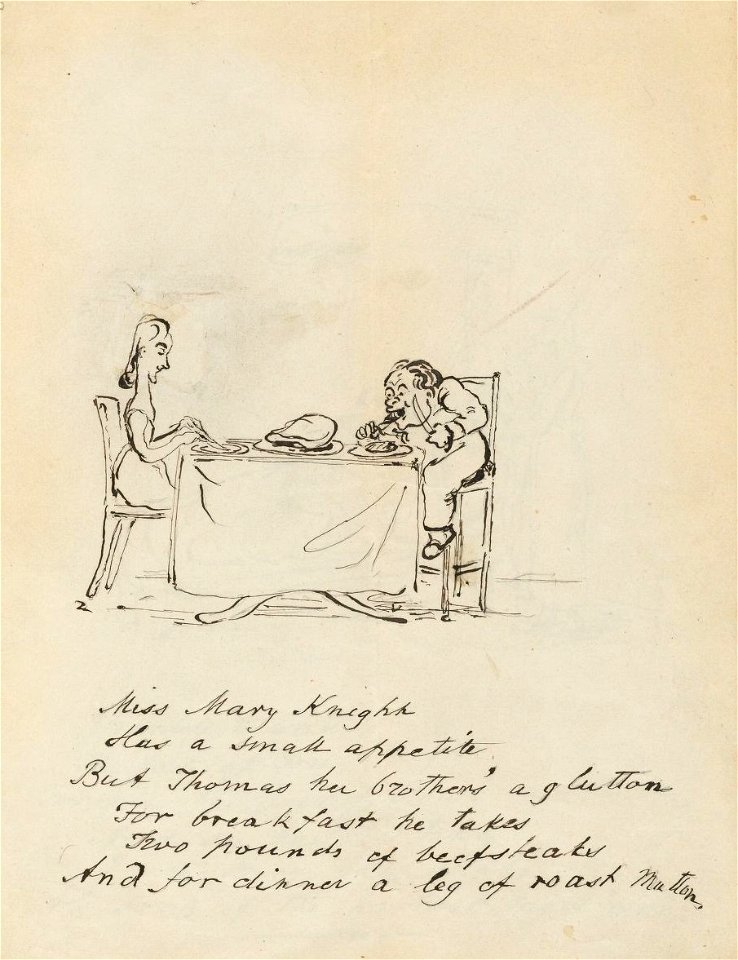 Miss Mary Knight
Has a small appetite
But Thomas her brothers' a glutton
For breakfast he takes
Two pounds of beefsteaks
And for dinner a leg of roast Mutton.